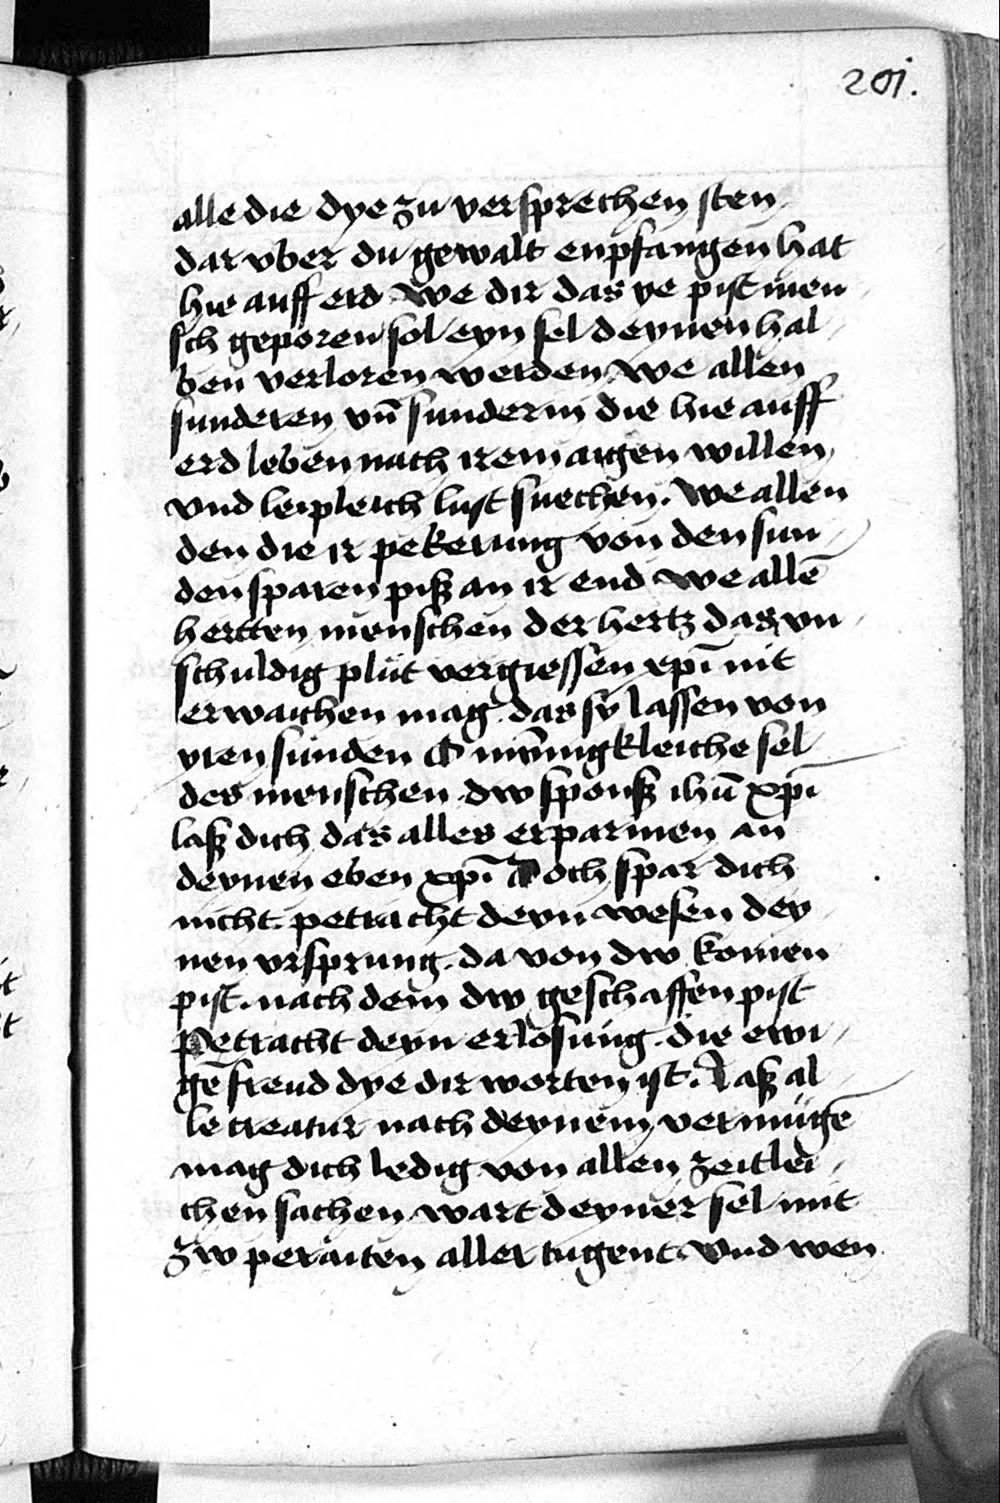 201.
alle die dye zu versprechen sten
dar vber du gewalt enpfangen hat
hie auff erd we dir das ye pist men
sch geporen sol eyn sel deynen hal
ben verloren werden we allen
sunderen vn̄ sunderin die hie auff
erd leben nach irem aigen willen
vnd leipleich lust suechen. We allen
den die ir pekerung von den sun
den sparen pisz an ir end we allē
hertten menschen der hertz das vn
schuldig plüt vergiessen xp̄i nit
erwaichen mag das sy lassen von
yren sunden O mȳnigkleiche sel
des menschen dw spousz ihū xp̄i
lasz dich das alles erparmen an
deynen eben xp̄i doch spar dich
nicht. petracht deyn wesen dey
nen vrsprung. da von dw komen
pist. nach dem dw geschaffen pist
Petracht deyn erlosung. die ewi
gē freud dye dir worten ist. Lasz al
le creatur nach deynem vermügē
mag dich ledig von allen zeitlei
chen sachen wart deyner sel mit
zw peraiten aller tugent vnd wen